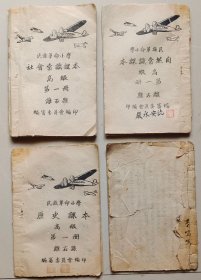 民族革命小學
社會常識課本
高級
第一冊
離石縣
編審委員會編印
民族革命小學
自然常識課本
高級
第一冊
離石縣
編審委員會編印
民族革命小學
歷史課本
高級
第一冊
離石縣
編審委員會編印